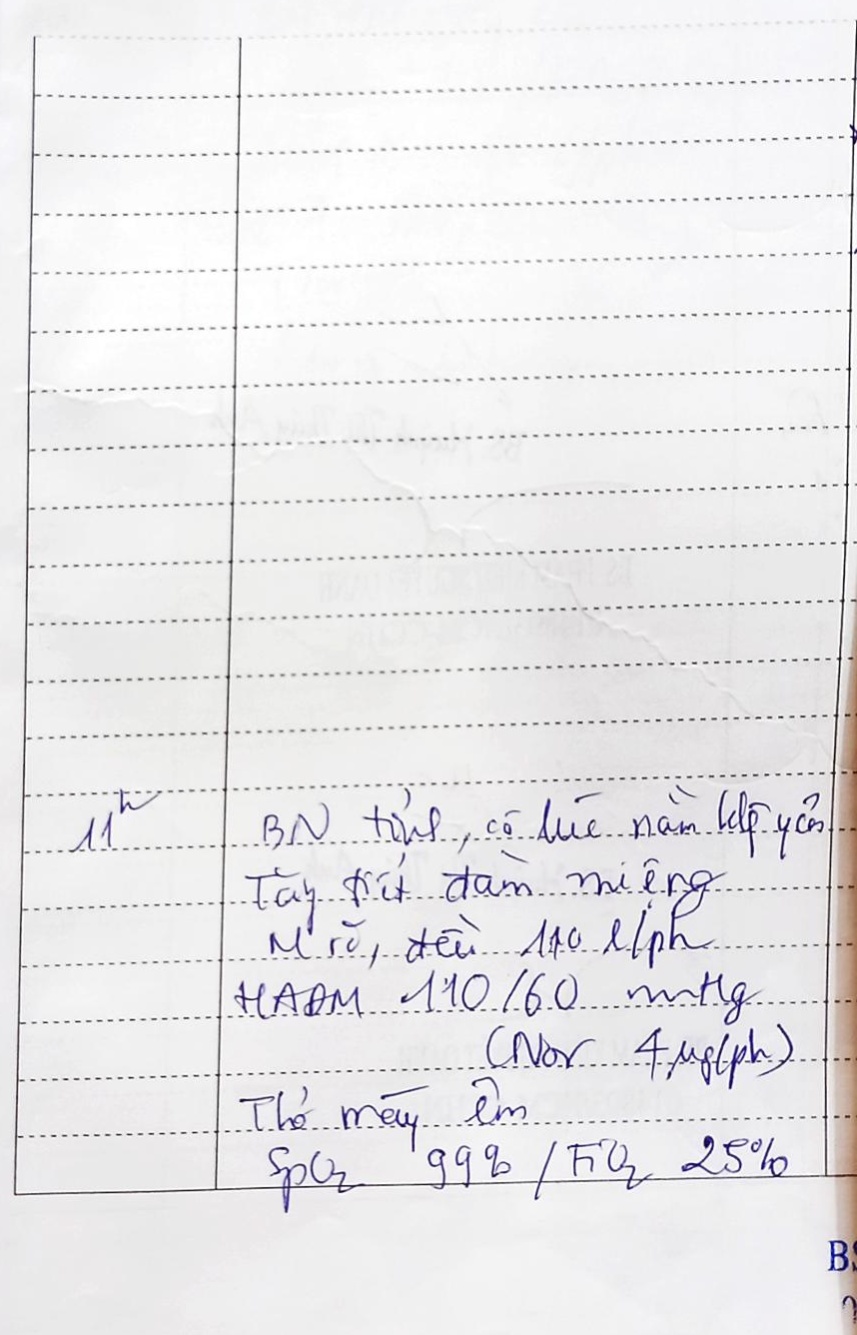 11h
BN tỉnh, có lúc nằm yên
Tay đàm miệng
M rõ, đều 110 l/ph
HAĐM 110/60 mmHg
(Nor 4 µg/ph)
Thở máy êm
SpO2 99% / FiO2 25%
BS